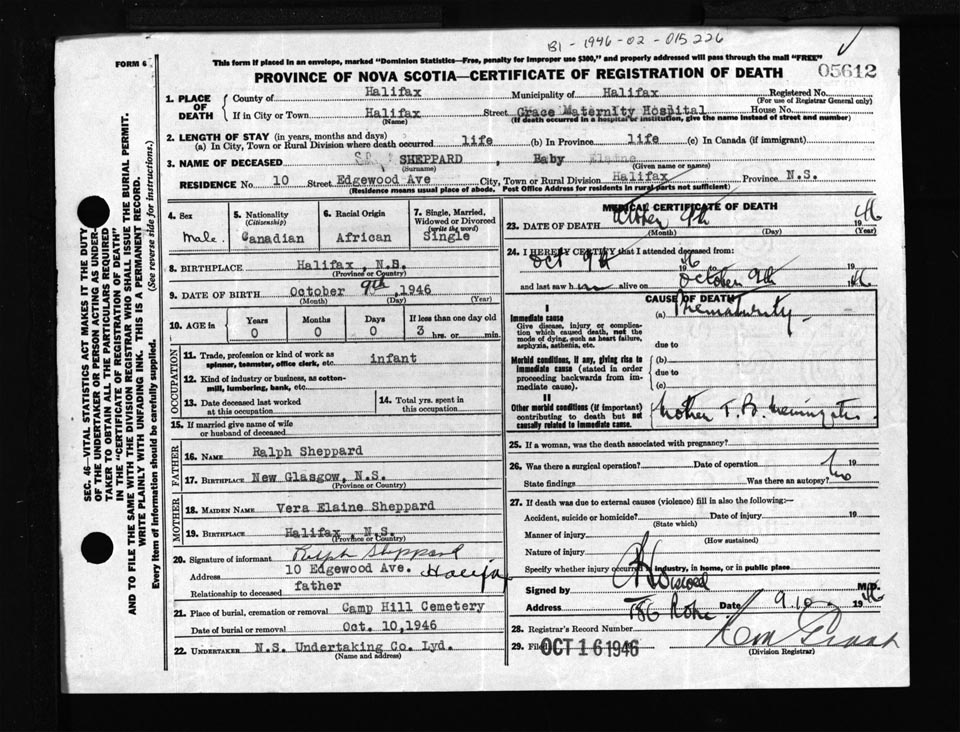 B1 - 1946 - 02 - 015226
FORM 6
This form if placed in an envelope, marked "Dominion Statistics—Free, penalty for improper use $300," and properly addressed will pass through the mail "FREE"
PROVINCE OF NOVA SCOTIA—CERTIFICATE OF REGISTRATION OF DEATH
05612
SEC. 46—VITAL STATISTICS ACT MAKES IT THE DUTY
OF THE UNDERTAKER OR PERSON ACTING AS UNDER-
TAKER TO OBTAIN ALL THE PARTICULARS REQUIRED
IN THE "CERTIFICATE OF REGISTRATION OF DEATH"
AND TO FILE THE SAME WITH THE DIVISION REGISTRAR WHO SHALL ISSUE THE BURIAL PERMIT.
WRITE PLAINLY WITH UNFADING INK. THIS IS A PERMANENT RECORD.
Every item of information should be carefully supplied. (See reverse side for instructions.)
1. PLACE OF DEATH
County of Halifax Municipality of Halifax Registered No.
(For use of Registrar General only)
If in City or Town Halifax Street Grace Maternity Hospital House No.
(Name) (If death occurred in a hospital or institution, give the name instead of street and number)
2. LENGTH OF STAY (in years, months and days)
(a) In City, Town or Rural Division where death occurred life (b) In Province life (c) In Canada (if immigrant)
3. NAME OF DECEASED SHEPPARD, Baby Elaine
(Surname) (Given name or names)
RESIDENCE No. 10 Street Edgewood Ave City, Town or Rural Division Halifax Province N.S.
(Residence means usual place of abode. Post Office Address for residents in rural parts not sufficient)
4. Sex
Male.
5. Nationality
(Citizenship)
Canadian
6. Racial Origin
African
7. Single, Married, Widowed or Divorced
(write the word)
Single
8. BIRTHPLACE Halifax, N.B.
(Province or Country)
9. DATE OF BIRTH October 9th, 1946
(Month) (Day) (Year)
10. AGE in
Years Months Days If less than one day old
0 0 0 3 hrs. or min.
OCCUPATION
11. Trade, profession or kind of work as
spinner, teamster, office clerk, etc. infant
12. Kind of industry or business, as cotton-
mill, lumbering, bank, etc.
13. Date deceased last worked
at this occupation
14. Total yrs. spent in
this occupation
15. If married give name of wife
or husband of deceased
FATHER
16. NAME Ralph Sheppard
17. BIRTHPLACE New Glasgow, N.S.
(Province or Country)
MOTHER
18. MAIDEN NAME Vera Elaine Sheppard
19. BIRTHPLACE Halifax, N.S.
(Province or Country)
20. Signature of informant Ralph Sheppard
Address 10 Edgewood Ave. Halifax
Relationship to deceased father
21. Place of burial, cremation or removal Camp Hill Cemetery
Date of burial or removal Oct. 10,1946
22. UNDERTAKER N.S. Undertaking Co. Lyd.
(Name and address)
MEDICAL CERTIFICATE OF DEATH
23. DATE OF DEATH October 9th 1946
(Month) (Day) (Year)
24. I HEREBY CERTIFY that I attended deceased from:
Oct 9th 1946 to October 9th 1946
and last saw h im alive on 19
CAUSE OF DEATH
I
Immediate cause
Give disease, injury or complica-
tion which caused death, not the
mode of dying, such as heart failure,
asphyxia, asthenia, etc.
(a) Prematurity
due to
Morbid conditions, if any, giving rise to
immediate cause (stated in order
proceeding backwards from im-
mediate cause).
(b)
due to
(c)
II
Other morbid conditions (if important)
contributing to death but not
causally related to immediate cause.
Mother T.B. Meningitis.
25. If a woman, was the death associated with pregnancy?
26. Was there a surgical operation? Date of operation 19
State findings Was there an autopsy? no
27. If death was due to external causes (violence) fill in also the following:—
Accident, suicide or homicide? Date of injury 19
(State which)
Manner of injury
(How sustained)
Nature of injury
Specify whether injury occurred in industry, in home, or in public place
Signed by M.D.
Address Date 9.10 1946
28. Registrar's Record Number
29. Filed OCT 16 1946
(Division Registrar)